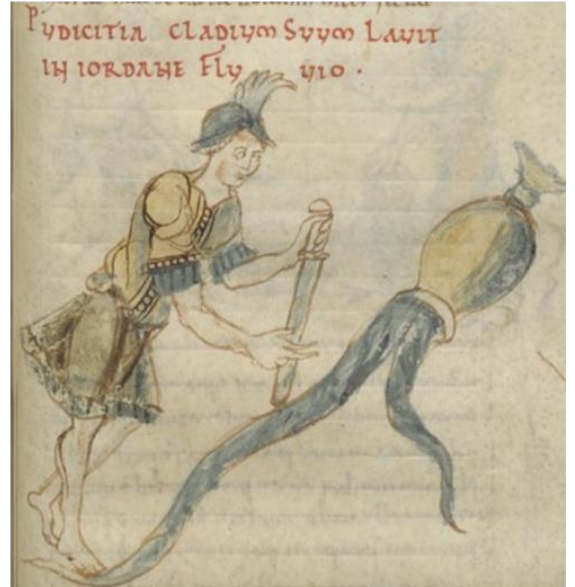 PUDICITIA CLADIUM SUUM LAVIT
IN IORDANE FLU VIO ·